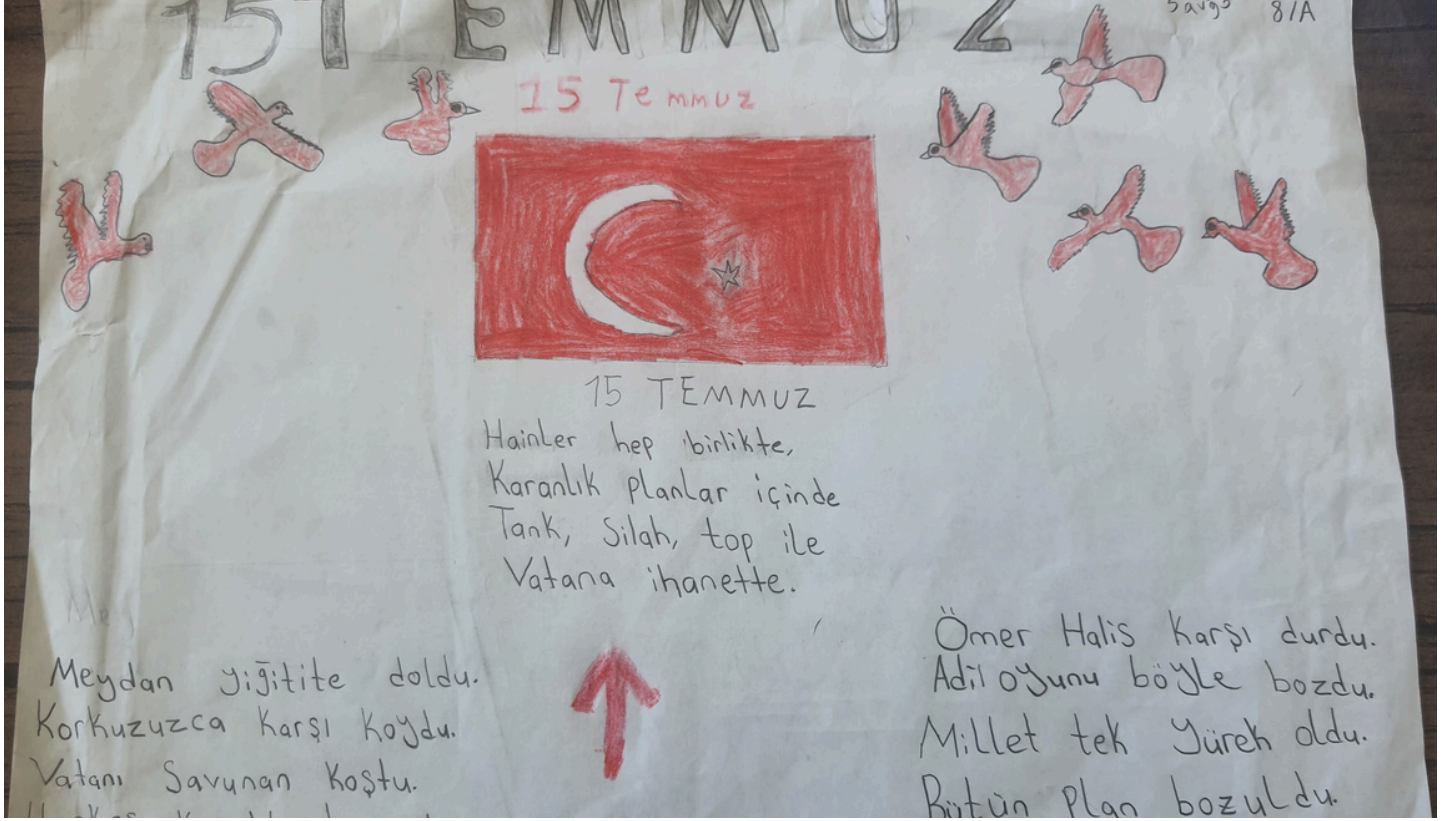 15 TEMMUZ
Savgı 8/A
15 Temmuz
15 TEMMUZ
Hainler hep birlikte,
Karanlık planlar içinde
Tank, Silah, top ile
Vatana ihanette.
Meydan yiğitite doldu.
Korkuzuzca karşı koydu.
Vatanı Savunan koştu.
Ömer Halis karşı durdu.
Adil oyunu böyle bozdu.
Millet tek yürek oldu.
Bütün plan bozuldu.